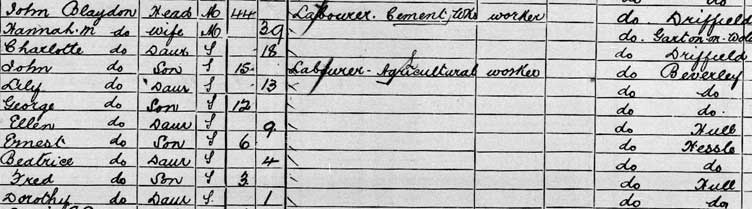 John Blaydon Head M 44 Labourer. Cement Wks worker do Driffield
Hannah. M do Wife M 39 do Garton-on-Wolds
Charlotte do Daur S 18 do Driffield
John do Son S 15 Labourer - Agricultural worker do Beverley
Lily do Daur S 13 do do
George do Son S 12 do do
Ellen do Daur S 9 do Hull
Ernest do Son S 6 do Hessle
Beatrice do Daur S 4 do do
Fred do Son S 3 do Hull
Dorothy do Daur S. 1 do do